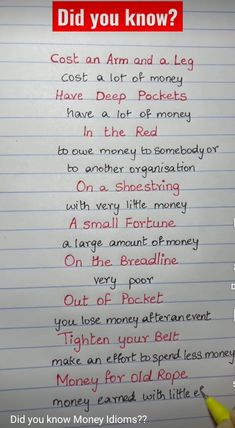 Did you know?
Cost an Arm and a Leg
cost a lot of money
Have Deep Pockets
have a lot of money
In the Red
to owe money to somebody or
to another organisation
On a Shoestring
with very little money
A small Fortune
a large amount of money
On the Breadline
very poor
Out of Pocket
you lose money after an event
Tighten your Belt
make an effort to spend less money
Money for old Rope
money earned with little ef
Did you know Money Idioms??